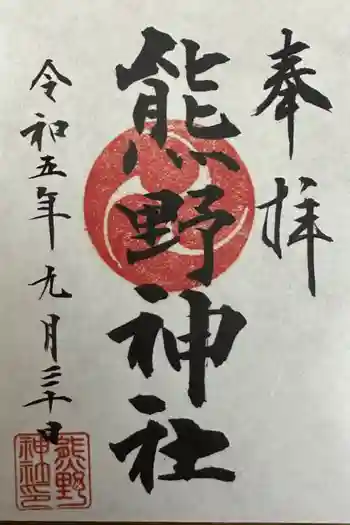 奉拝
熊野神社
令和五年九月三十日
熊野
神社印